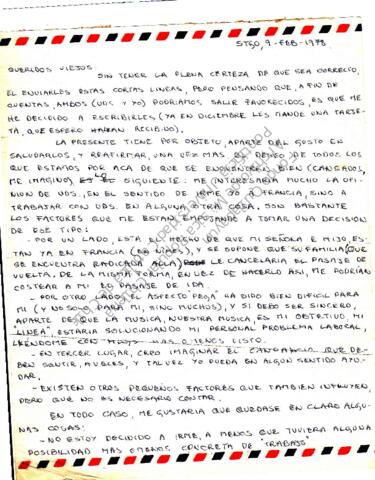 STGO, 9-FEB-1978
QUERIDOS VIEJOS:
SIN TENER LA PLENA CERTEZA DE QUE SEA CORRECTO,
EL ENVIARLES ESTAS CORTAS LINEAS, PERO PENSANDO QUE, A FIN DE
CUENTAS, AMBOS (UDS Y YO) PODRIAMOS SALIR FAVORECIDOS, ES QUE ME
HE DECIDIDO A ESCRIBIRLES (YA EN DICIEMBRE LES MANDE UNA TARJE-
TA, QUE ESPERO HAYAN RECIBIDO).
LA PRESENTE TIENE POR OBJETO, APARTE DEL GUSTO EN
SALUDARLOS, Y REAFIRMAR, UNA VEZ MAS EL DESEO DE TODOS LOS
QUE ESTAMOS POR ACA DE QUE SE ENCUENTREN BIEN (CANSADOS,
ME IMAGINO) SIGUIENTE: ME INTERESARIA MUCHO LA OPI
NION DE UDS, EN EL SENTIDO DE IRME YO A FRANCIA, SINO A
TRABAJAR CON UDS. EN ALGUNA OTRA COSA. SON BASTANTE
LOS FACTORES QUE ME ESTAN EMPUJANDO A TOMAR UNA DECISION
DE ESE TIPO:
- POR UN LADO, ESTA EL HECHO DE QUE MI SEÑORA E HIJO, ES-
TAN YA EN FRANCIA Y SE SUPONE QUE SU FAMILIA (QUE
SE ENCUENTRA RADICADA ALLA) LE CANCELARIA EL PASAJE DE
VUELTA, DE LA MISMA FORMA, EN VEZ DE HACERLO ASI, ME PODRIAN
COSTEAR A MI EL PASAJE DE IDA.
- POR OTRO LADO, EL ASPECTO "PEGA" HA SIDO BIEN DIFICIL PARA
MI (Y NO SOLO PARA MI, SINO MUCHOS), Y SI DEBO SER SINCERO,
APARTE DE QUE LA MUSICA, NUESTRA MUSICA, ES MI OBJETIVO, MI
"LINEA", ESTARIA SOLUCIONANDO MI PERSONAL PROBLEMA LABORAL,
YENDOME CON MAS O MENOS LISTO.
- EN TERCER LUGAR, CREO IMAGINAR EL CANSANCIO QUE DE-
BEN SENTIR, Y TAL VEZ YO PUEDA EN ALGUN SENTIDO AYU-
DAR.
- EXISTEN OTROS PEQUEÑOS FACTORES QUE TAMBIEN INFLUYEN,
PERO QUE NO ES NECESARIO CONTAR.
EN TODO CASO, ME GUSTARIA QUE QUEDASE EN CLARO ALGU-
NAS COSAS:
- NO ESTOY DECIDIDO A IRME, A MENOS QUE TUVIERA ALGUNA
POSIBILIDAD MAS O MENOS CONCRETA DE "TRABAJO"